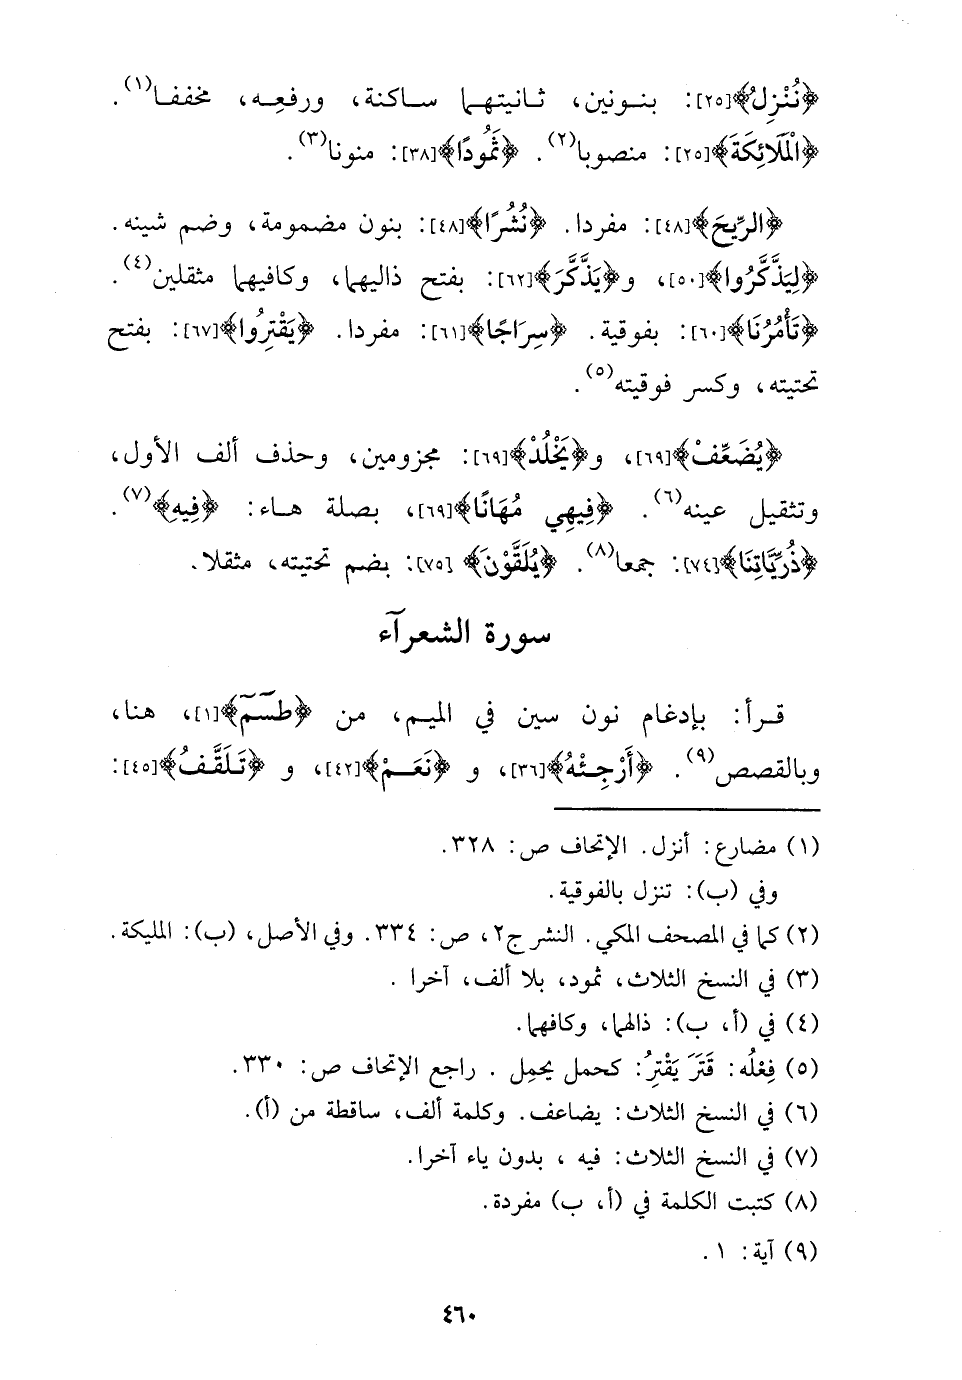 ﴿نُنْزِلُ﴾[٢٥]: بنـونين، ثـانيتهـا سـاكنة، ورفعـه، مخففـا(١).
﴿الْمَلَائِكَةَ﴾[٢٥]: منصوبا(٢). ﴿ثَمُودًا﴾[٣٨]: منونا(٣).
﴿الرِّيحَ﴾[٤٨]: مفردا. ﴿نُشُرًا﴾[٤٨]: بنون مضمومة، وضم شينه.
﴿لِيَذَّكَّرُوا﴾[٥٠]، و﴿يَذَّكَّرَ﴾[٦٢]: بفتح ذاليهما، وكافيهما مثقلين(٤).
﴿تَأْمُرُنَا﴾[٦٠]: بفوقية. ﴿سِرَاجًا﴾[٦١]: مفردا. ﴿يَقْتِرُوا﴾[٦٧]: بفتح
تحتيته، وكسر فوقيته(٥).
﴿يُضَعِّفْ﴾[٦٩]، و﴿يَخْلُدْ﴾[٦٩]: مجزومين، وحذف ألف الأول،
وتثقيل عينه(٦). ﴿فِيهِي مُهَانًا﴾[٦٩]، بصلة هـاء: ﴿فِيهِ﴾(٧).
﴿ذُرِّيَّاتِنَا﴾[٧٤]: جمعا(٨). ﴿يُلَقَّوْنَ﴾ [٧٥]: بضم تحتيته، مثقلا.
سورة الشعرآء
قـرأ: بإدغام نون سين في الميـم، من ﴿طسٓمٓ﴾[١]، هنـا،
وبالقصص(٩). ﴿أَرْجِـئْهُ﴾[٣٦]، و ﴿نَعَـمْ﴾[٤٢]، و ﴿تَـلَقَّـفُ﴾[٤٥]:
(١) مضارع: أنزل. الإتحاف ص: ٣٢٨.
وفي (ب): تنزل بالفوقية.
(٢) كما في المصحف المكي. النشر ج٢، ص: ٣٣٤. وفي الأصل، (ب): المليكة.
(٣) في النسخ الثلاث، ثمود، بلا ألف، آخرا .
(٤) في (أ، ب): ذالهما، وكافهما.
(٥) فِعْلُه: قَتَرَ يَقْتِرُ: كحمل يحمِل . راجع الإتحاف ص: ٣٣٠.
(٦) في النسخ الثلاث: يضاعف. وكلمة ألف، ساقطة من (أ).
(٧) في النسخ الثلاث: فيه ، بدون ياء آخرا.
(٨) كتبت الكلمة في (أ، ب) مفردة.
(٩) آية: ١ .
٤٦٠